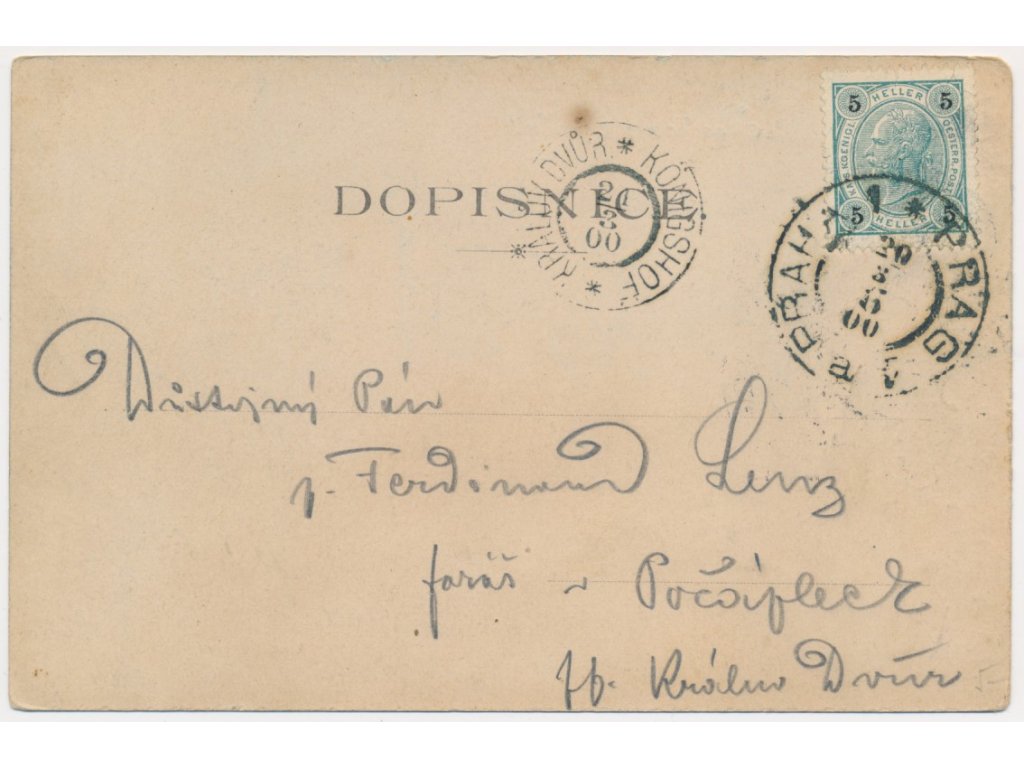 5 HELLER 5
KAIS. KOENIGL. OESTERR. POST
5 HELLER 5
DOPISNICE.
KRALŮV DVŮR * KÖNIGSHOF *
21
3
00
PRAHA 1 * PRAG
20
3
00
Důstojný Pán
p. Ferdinand Lenz
farář v Počáplech
pp. Králův Dvůr